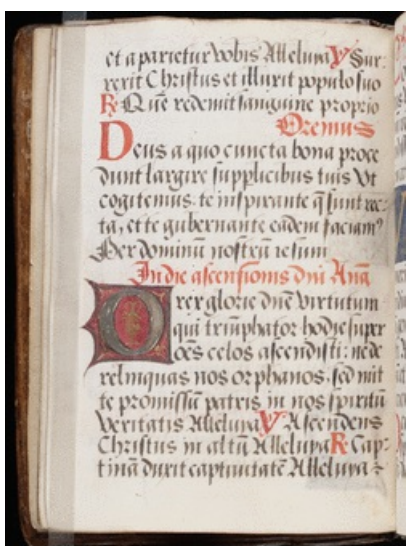 et aparietur vobis Alleluya ℣ Sur⸗
rexit Christus et illuxit populo suo
℞ Quē redemit sanguine proprio
Oremus
Deus a quo cuncta bona proce
dunt largire supplicibus tuis Vt
cogitemus te inspirante q̄ sunt rec⸗
ta, et te gubernante eadem faciamꝰ
Per dominū nostrū iesum
In die ascensionis dnī Anā
O rex glorie dn̄e virtutum
qui triūphator hodie super
oēs celos ascendisti: ne de
relinquas nos orphanos, sed mit
te promissū patris in nos spiritū
veritatis Alleluya ℣ Ascendens
Christus in altū Alleluya ℞ Cap⸗
tiuā duxit captiuitatē Alleluya ⸗